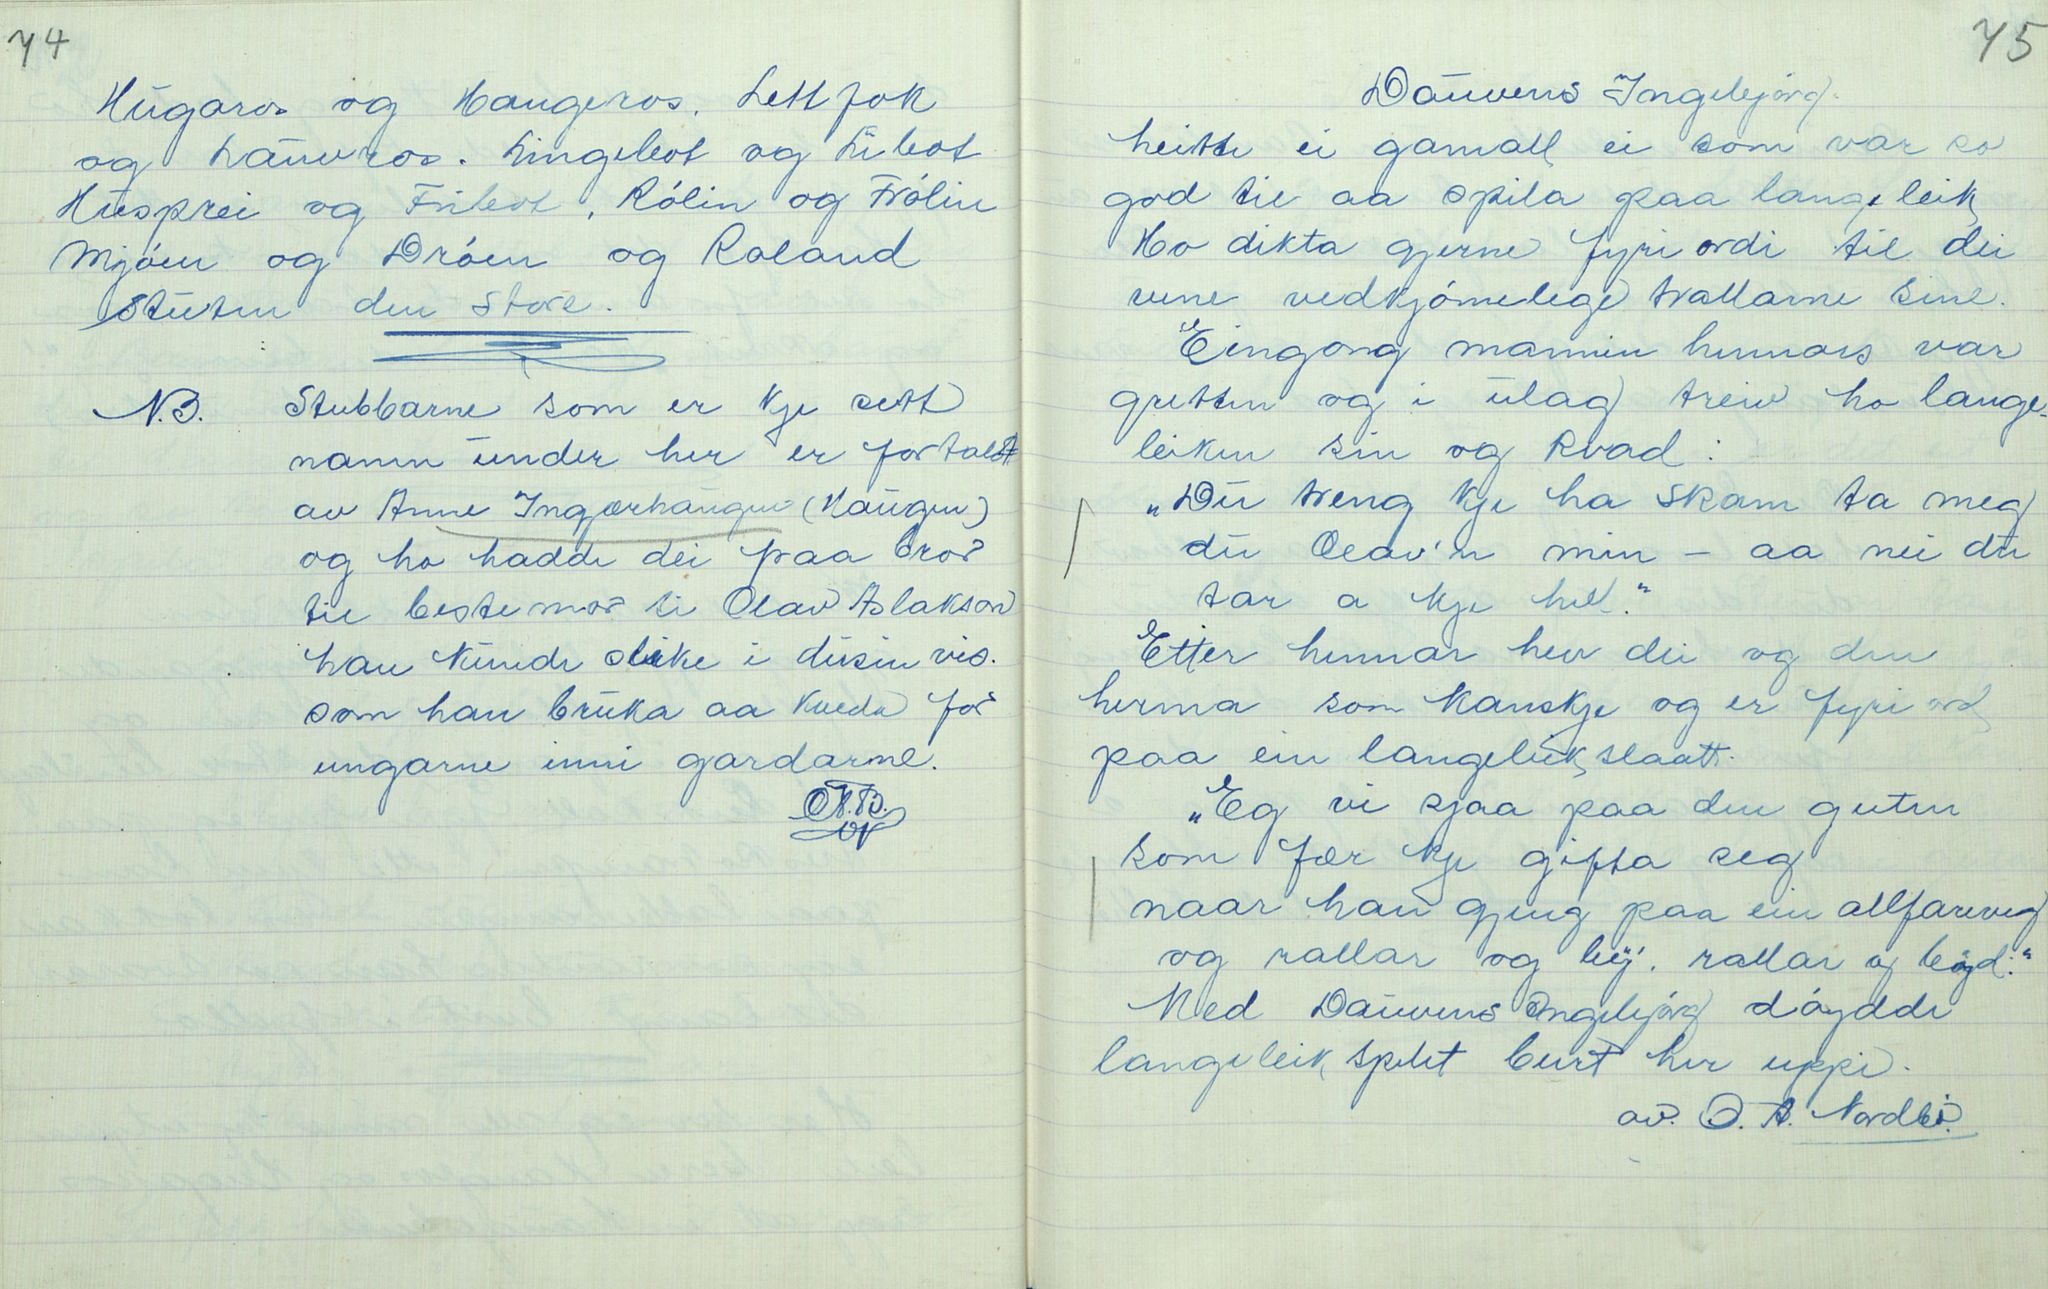 74
Hugaros og Haugeros. Lettfok
og Lauvros. Lingebot og Libot
Husprei og Fribot, Rólin og Frólin
Mjóen og Dróen og Roland
Stuten den store.
N.B. Stubbarne som er kje sett
namn under her er fortalt
av Anne Ingærhaugen (Haugen)
og ho hadde dei paa bror
til bestemor ti Olav Aslakson
han kunde slike i dusin vis.
som han bruka aa kveda for
ungarne inni gardarne.
75
Dauvens Ingebjórg.
heitte ei gamall ei som var so
god til aa spila paa langeleik
Ho dikta gjerne fyri ordi til dei
uvedkjómelege trallarne sine.
Eingong mannin hennars var
gretten og i ulag treiv ho lange-
leiken sin og kvad:
"Du treng kje ha skam ta meg
du Olav'n min - aa nei du
tar a kje hell."
Etter hennar hev dei og den
herma som kanskje og er fyri ord
paa ein langeleikslaatt.
"Eg vi sjaa paa den guten
som fær kje gifta seg
naar han gjeng paa ein allfareveg
og rallar og bÿ. rallar og bÿd."
Med Dauvens Ingebjórg dóydde
langeleikspelet burt her uppi.
av. O. A. Nordbó.